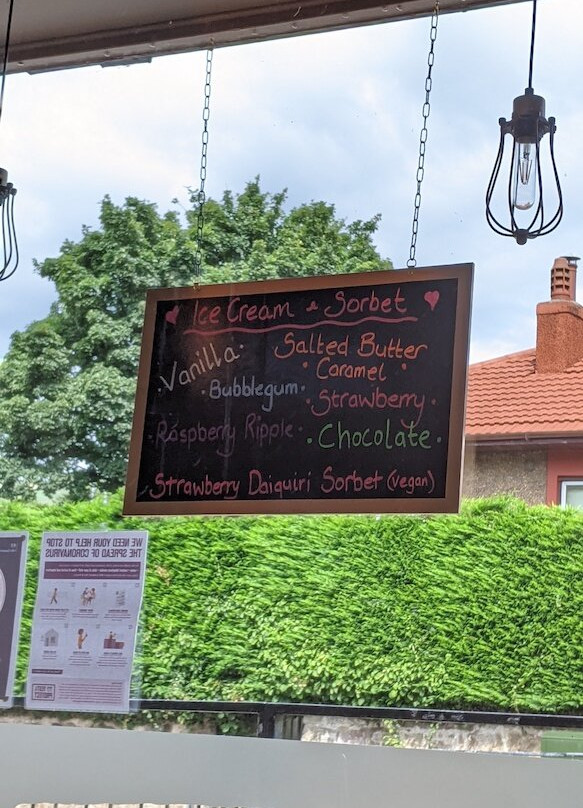 Ice Cream & Sorbet
Vanilla
Salted Butter
Caramel
Bubblegum
Strawberry
Raspberry Ripple
Chocolate
Strawberry Daiquiri Sorbet (vegan)
WE NEED YOUR HELP TO STOP
THE SPREAD OF CORONAVIRUS